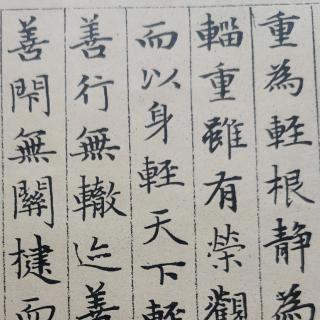 重為輕根静為
輜重雖有榮觀
而以身輕天下輕
善行無轍迹善
善閇無關揵而